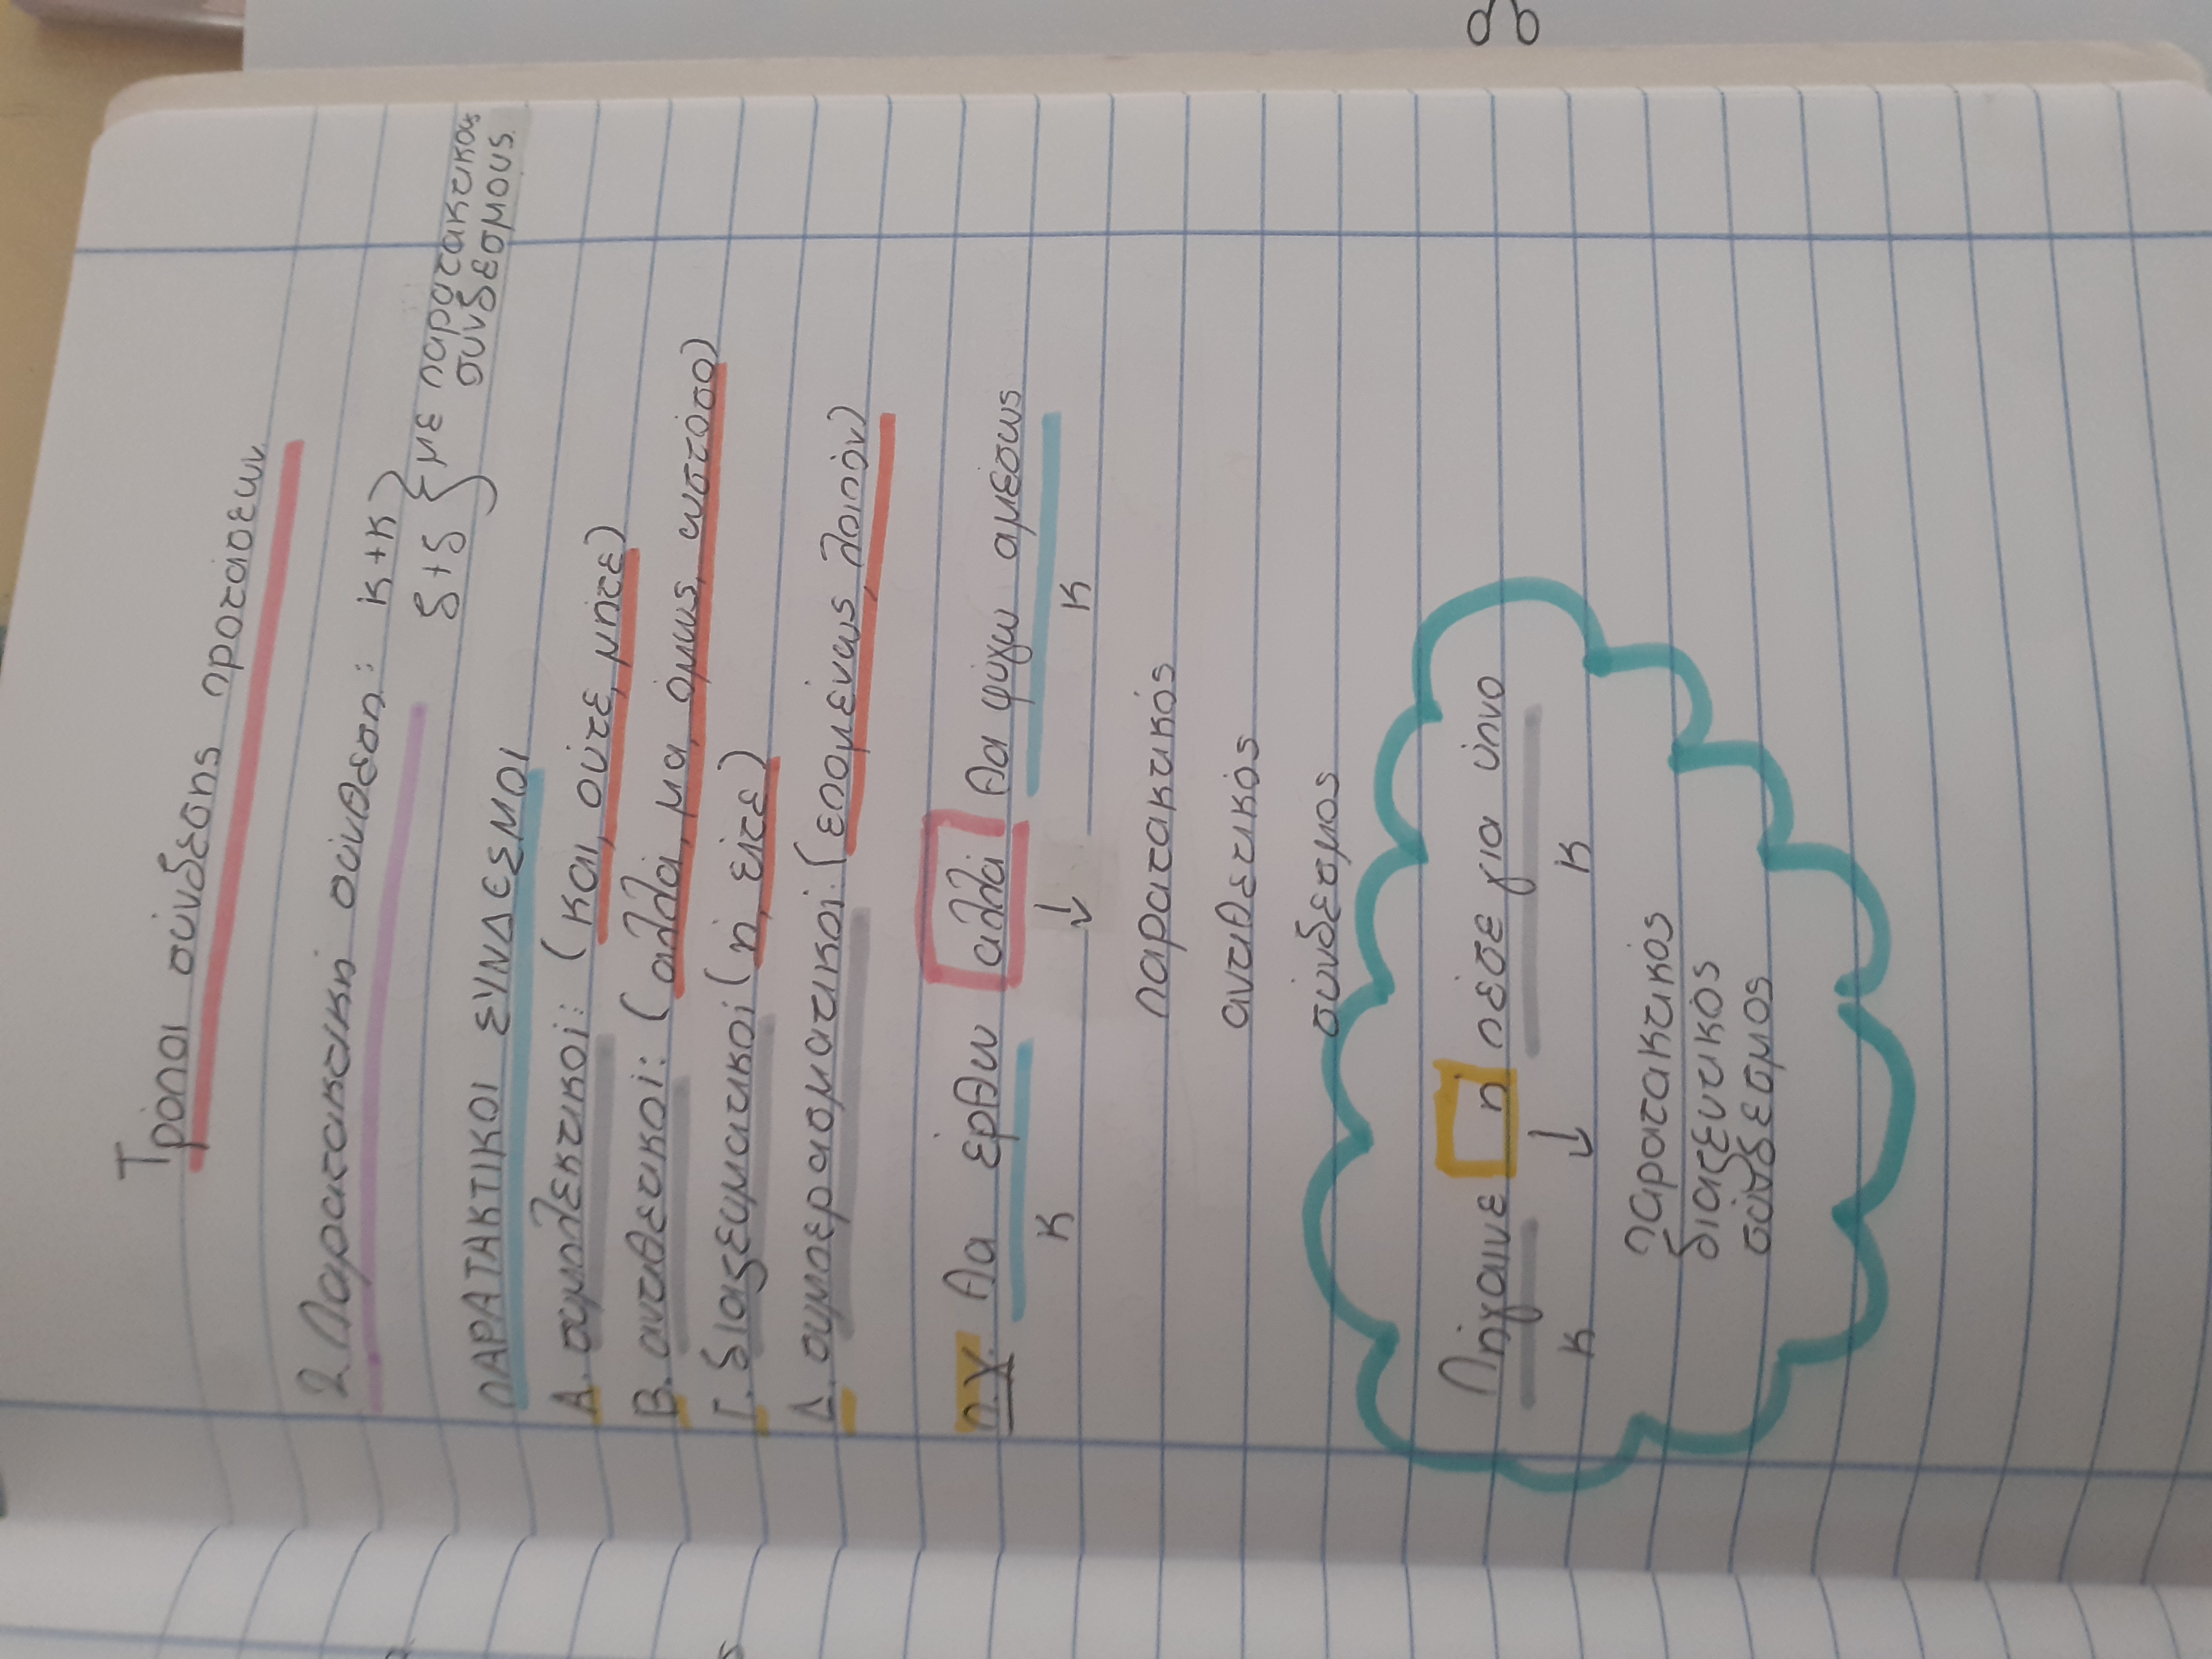 Τρόποι σύνδεσης προτάσεων
2. Παρατακτική σύνθεση: κ+κ
δ+δ } με παρατακτικους
συνδεσμους.
ΠΑΡΑΤΑΚΤΙΚΟΙ ΣΥΝΔΕΣΜΟΙ
Α. συμπλεκτικοί: (και, ούτε, μήτε)
Β. αντιθετικοί: (αλλά, μα, όμως, ωστόσο)
Γ. διαζευματικοί (ή, είτε)
Δ. συμπερασματικοί: (επομένως, λοιπόν)
π.χ. Θα έρθω αλλά θα φύγω αμέσως
κ ↓ κ
παρατακτικός
αντιθετικός
σύνδεσμος
Πήγαινε ή πέσε για ύπνο
κ ↓ κ
παρατακτικός
διαζευτικός
σύνδεσμος